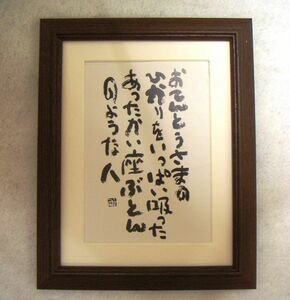 おてんとうさまの
ひかりをいっぱい吸った
あったかい座ぶとん
のような人